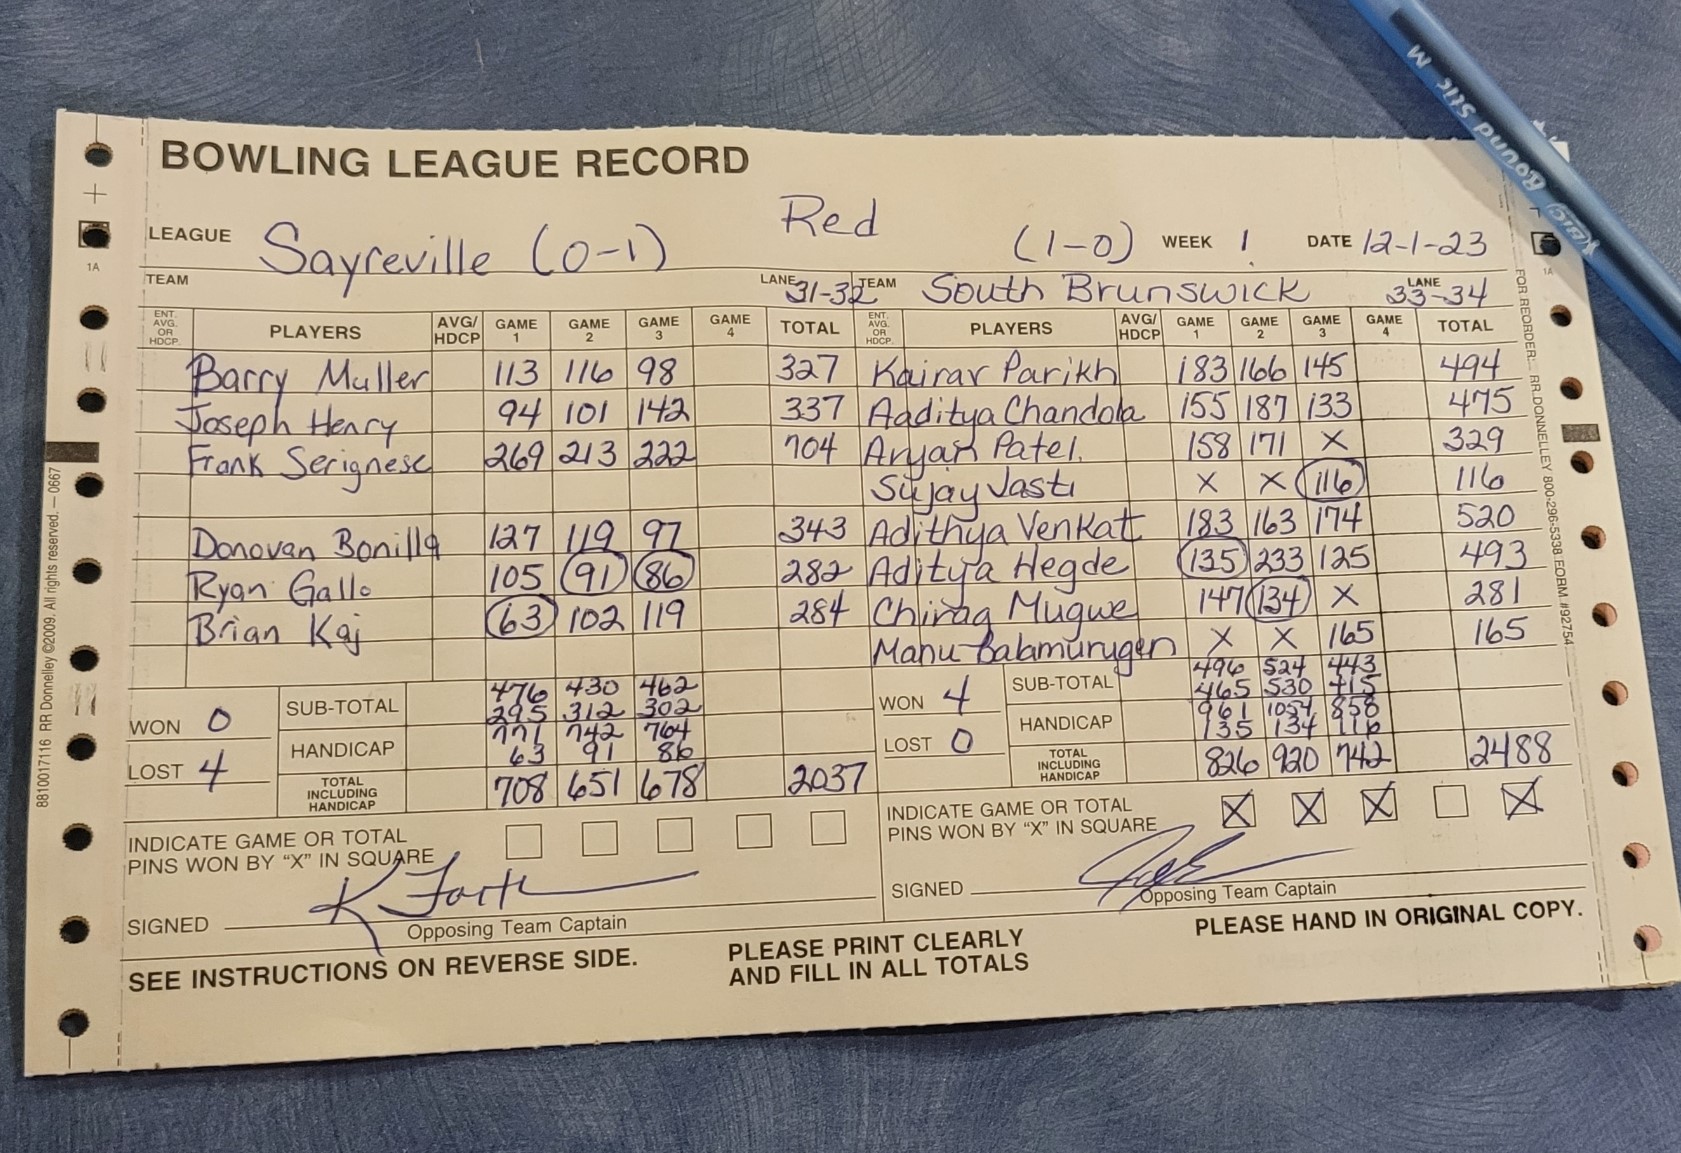 BOWLING LEAGUE RECORD
LEAGUE Sayreville (0-1) Red (1-0) WEEK 1 DATE 12-1-23
TEAM LANE 31-32 TEAM South Brunswick LANE 33-34
ENT. AVG. OR HDCP. PLAYERS AVG/ HDCP GAME 1 GAME 2 GAME 3 GAME 4 TOTAL ENT. AVG. OR HDCP. PLAYERS AVG/ HDCP GAME 1 GAME 2 GAME 3 GAME 4 TOTAL
Barry Muller 113 116 98 327 Kairav Parikh 183 166 145 494
Joseph Henry 94 101 142 337 Aaditya Chandola 155 187 133 475
Frank Serignese 269 213 222 704 Aryan Patel 158 171 X 329
Sujay Vasti X X 116 116
Donovan Bonilla 127 119 97 343 Adithya Venkat 183 163 174 520
Ryan Gallo 105 91 86 282 Aditya Hegde 135 233 125 493
Brian Kaj 63 102 119 284 Chirag Mugwe 147 134 X 281
Manu Balamurugen X X 165 165
476 430 462 496 524 443
SUB-TOTAL 295 312 302 SUB-TOTAL 465 530 415
WON 0 771 742 764 WON 4 961 1054 858
HANDICAP 63 91 86 HANDICAP 135 134 116
LOST 4 TOTAL INCLUDING HANDICAP 708 651 678 2037 LOST 0 TOTAL INCLUDING HANDICAP 826 920 742 2488
INDICATE GAME OR TOTAL INDICATE GAME OR TOTAL
PINS WON BY "X" IN SQUARE PINS WON BY "X" IN SQUARE X X X X
SIGNED SIGNED
Opposing Team Captain Opposing Team Captain
SEE INSTRUCTIONS ON REVERSE SIDE. PLEASE PRINT CLEARLY PLEASE HAND IN ORIGINAL COPY.
AND FILL IN ALL TOTALS
8810017116 RR Donnelley ©2009. All rights reserved. — 0667
FOR REORDER: RR DONNELLEY 800-296-5338 FORM #92754
1A
1A
BIC Round Stic M